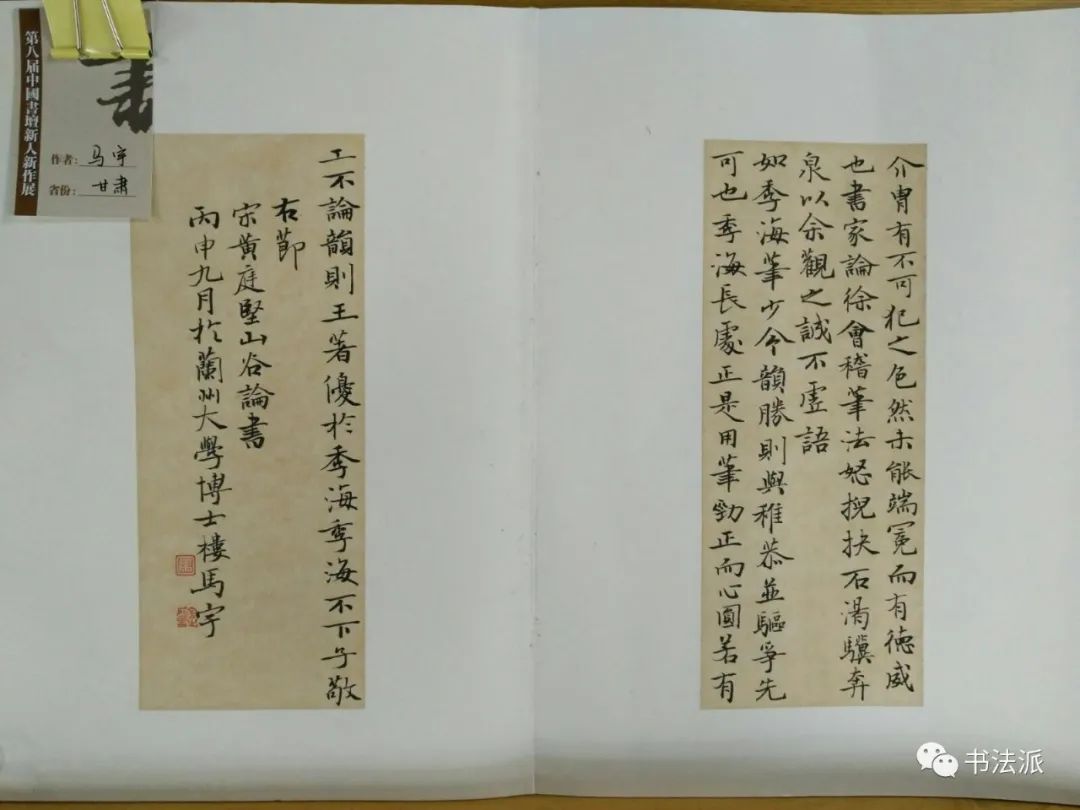 介冑有不可犯之色然未能端冕而有德威
也書家論徐會稽筆法怒猊抉石渴驥奔
泉以余觀之誠不虛語
如季海筆少令韻勝則與稚恭並驅爭先
可也季海長處正是用筆勁正而心圓若有
工不論韻則王著優於季海季海不下子敬
右節
宋黃庭堅山谷論書
丙申九月於蘭州大學博士樓馬宇
第八届中國書壇新人新作展
作者：马宇
省份：甘肃
书法派